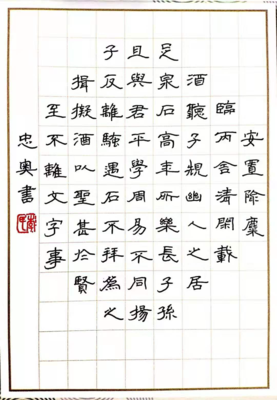 安置除麋
臨丙舍清閑載
酒聽子規幽人之居
足泉石高年所樂長子孫
旦與君平學周易不同揚
子反離騷遇石不拜為之
揖擬酒以聖甚於賢
至不離文字事
忠奥書